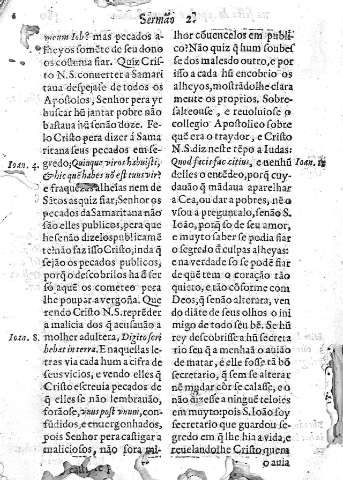 Sermão 2.
meum Iob? mas pecados a-
lheyos sómẽte de seu dono
os costuma fiar. Quiz Cris
to N.S. conuerter a Samari
tana despejase de todos os
Apostolos, Senhor pera yr
buscar hũ jantar pobre não
bastaua hũ senão doze. Fe-
lo Cristo pera dizer á Sama
ritana seus pecados em se-
Ioan. 4. gredo; Quinque viros habuisti,
& hic quẽ habes nõ est tuus vir:
e fraquezas alheias nem de
Sãtos as quiz fiar; Senhor os
pecados da Samaritana não
são elles publicos, pera que
he senão dizelos publicamẽ
te não faz isso Cristo, inda q̃
sejão os pecados publicos,
porq̃ o descobrilos ha de ser
só aquẽ os cometeo pera
lhe poupar a vergoña. Que
rendo Cristo N.S. reprẽder
a malicia dos q̃ acusauão a
Ioan. 8. molher adultera, Digito scri
bebat in terra. E naquellas le
tras via cada hum a cifra de
seus vicios, e vendo elles q̃
Cristo escreuia pecados de
q̃ elles se não lembrauão,
forãose, unus post unum, con-
fũdidos, e enuergonhados,
pois Senhor pera castigar a
maliciosos, não fora mi-
lhor cõuencelos em publi
co? Não quiz q̃ hum soubes
se dos males do outro, e por
isso a cada hũ encobrio os
alheyos, mostrãdolhe clara
mente os proprios. Sobre-
saltceouse, e reuoluiose o
collegio Apostolico sobre
quẽ era o traydor, e Cristo
N.S. diz neste rẽpo a Iudas:
Quod facis fac citius, e nenhũ Ioan. 13.
delles o entẽdeo, porq̃ cuy-
dauão q̃ mãdaua aparelhar
a Cea, ou dar a pobres, não
vsou a preguntalo, senão S.
Ioão, porq̃ so de seu amor,
e muyto saber se podia fiar
o segredo de culpas alheyas:
e na verdade só se pode fiar
de quẽ tem o coração tão
quieto, e tão cõforme com
Deos, q̃ senão alterára, ven
do diãte de seus olhos o ini
migo de todo seu bẽ. Se hũ
rey descobrisse a hũ secreta
rio seu q̃ a menhã o auião
de matar, e elle fosse tã bõ
secretario, q̃ sem se alterar
nẽ mudar côr se calasse, e o
não dizesse a ninguẽ teloies
em muyto: pois S. Ioão foy
secretario que guardou se-
gredo em q̃ lhe hia a vida, e
reuelandolhe Cristo quem
o auia